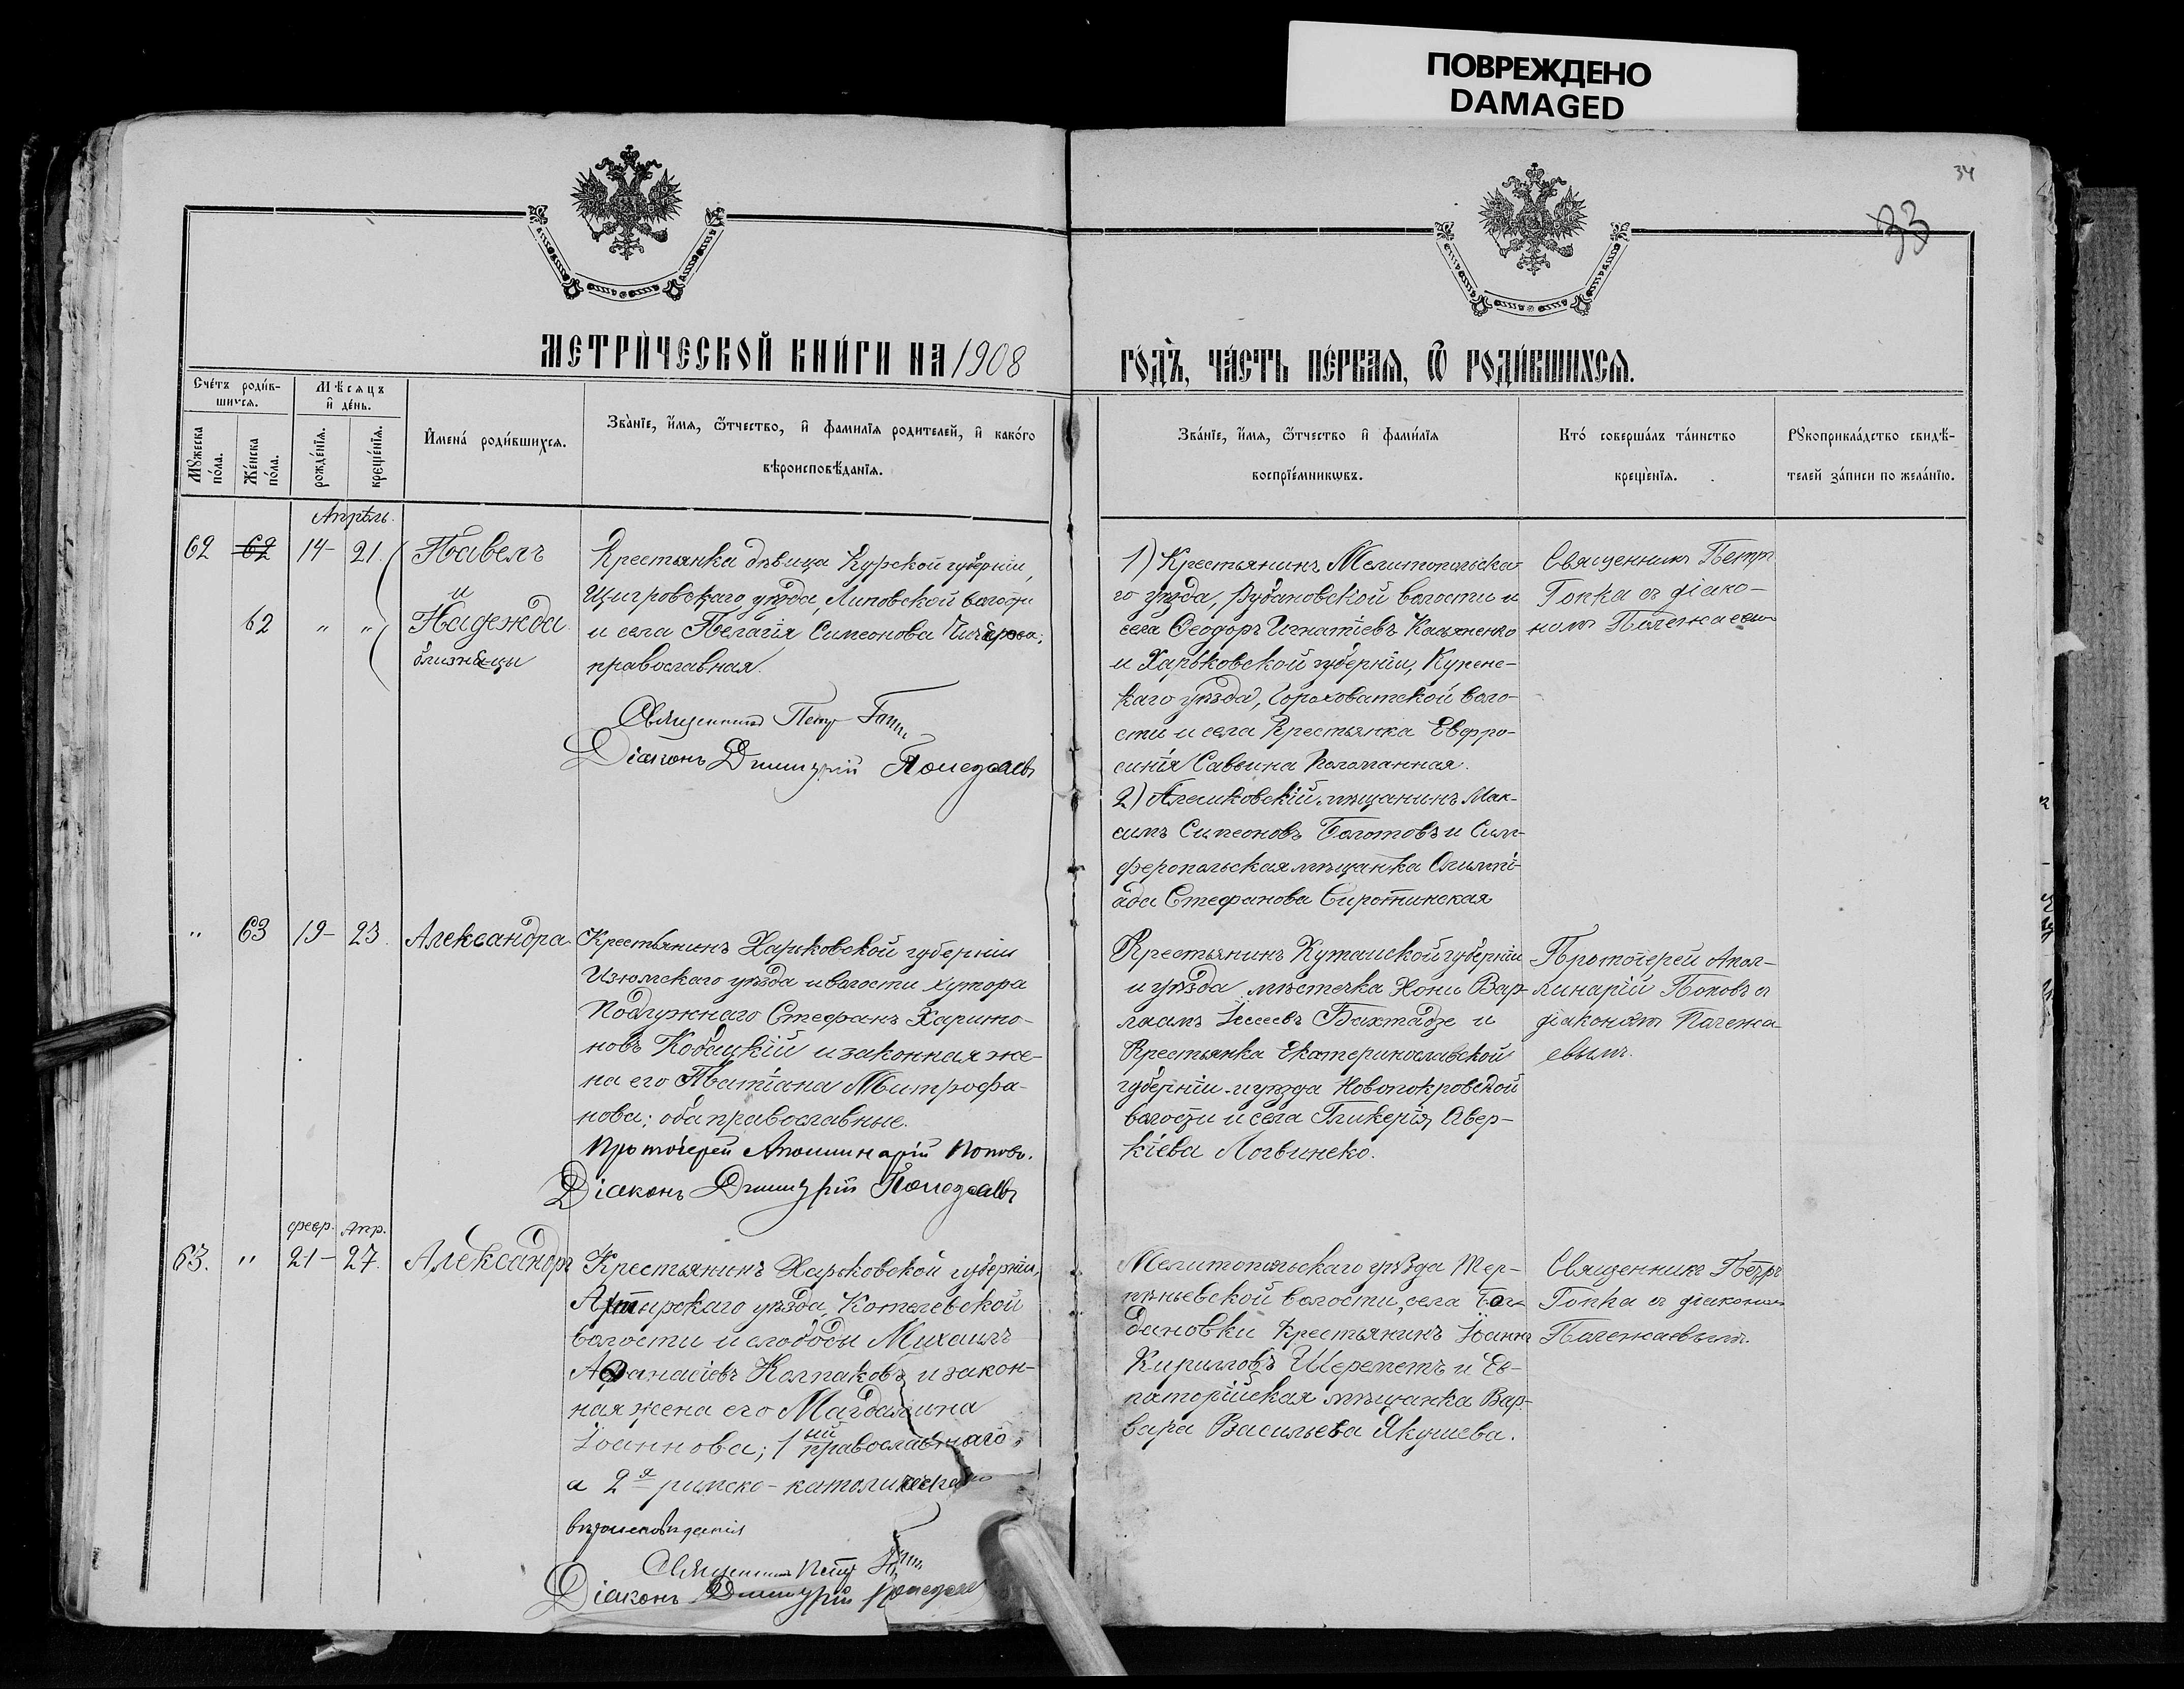 ПОВРЕЖДЕНО
DAMAGED
34
33
МЕТРИ́ЧЕСКОЙ КНИ́ГИ НА 1908
ГО́ДЪ, ЧА́СТЬ ПЕ́РВАЯ, Ѿ РОДИ́ВШИХСЯ.
Сче́тъ роди́в-
шихся.
Мѣсяцъ
и҆ де́нь.
Мꙋжеска
по́ла.
Же́нска
по́ла.
рожде́нїя.
креще́нїя.
И҆мена́ роди́вшихся.
Зва́нїе, и҆́мя, ѻ҆́тчество, и҆ фами́лїя родителей, и҆ како́го
вѣроисповѣ́данїя.
Зва́нїе, и҆́мя, ѻ҆́тчество и҆ фами́лїя
воспрїе́мникѡвъ.
Кто́ соверша́лъ та́инство
креще́нїя.
Рꙋкоприкла́дство свидѣ́-
телей за́писи по жела́нїю.
Апрѣль.
62 62 14- 21. Павелъ
и
62 " " Надежда
близнецы
Крестьянка дѣвица Курской губерніи,
Щигровскаго уѣзда, Липовской волости
и села Пелагія Симеонова
православная.
Священникъ Петръ Гопка
Діаконъ Димитрій Полежаевъ
1) Крестьянинъ Мелитопольска-
го уѣзда, Рубановской волости и
села Ѳеодоръ Игнатіевъ Касьяненко
и Харьковской губерніи, Купенс-
каго уѣзда, Гороховатской воло-
сти и села Крестьянка Евфро-
синія Саввина Поломанная.
2) Алешковскій мѣщанинъ Мак-
симъ Симеоновъ Болотовъ и Сим-
феропольская мѣщанка Олимпі-
ада Стефанова Сиротинская
Священникъ Петръ
Гопка съ діако-
номъ Полежаевым
" 63 19- 23. Александра
Крестьянинъ Харьковской губерніи
Изюмскаго уѣзда и волости хутора
Подлужнаго Стефанъ Харито-
новъ Кобацкій и законная же-
на его Татіана Митрофа-
нова; оба православные.
Протоіерей Аполлинарій Поповъ.
Діаконъ Димитрій Полежаевъ
Крестьянинъ Кутаиской губерніи
и уѣзда мѣстечка Хони Вар-
лаамъ Іессеевъ Бахтадзе и
Крестьянка Екатеринославской
губерніи и уѣзда Новопокровской
волости и села Гликерія Авер-
кіева Логвинеко.
Протоіерей Апол-
линарій Поповъ съ
діакономъ Полежа-
евымъ.
февр. Апр.
63. " 21- 27. Александръ
Крестьянинъ Харьковской губерніи,
Ахтырскаго уѣзда, Котелевской
волости и слободы Михаилъ
Аѳанасіевъ Колпаковъ и закон-
ная жена его Магдалина
Іоаннова; 1ый православнаго,
а 2я римско-католическаго
вѣроисповѣданія
Священникъ Петръ Гопка
Діаконъ Димитрій Полежаев
Мелитопольскаго уѣзда Тер-
пѣньевской волости, села Бог-
дановки крестьянинъ Іоаннъ
Кирилловъ Шереметъ и Ев-
паторійская мѣщанка Вар-
вара Васильева Якушева.
Священникъ Петръ
Гопка съ діакономъ
Полежаевымъ.